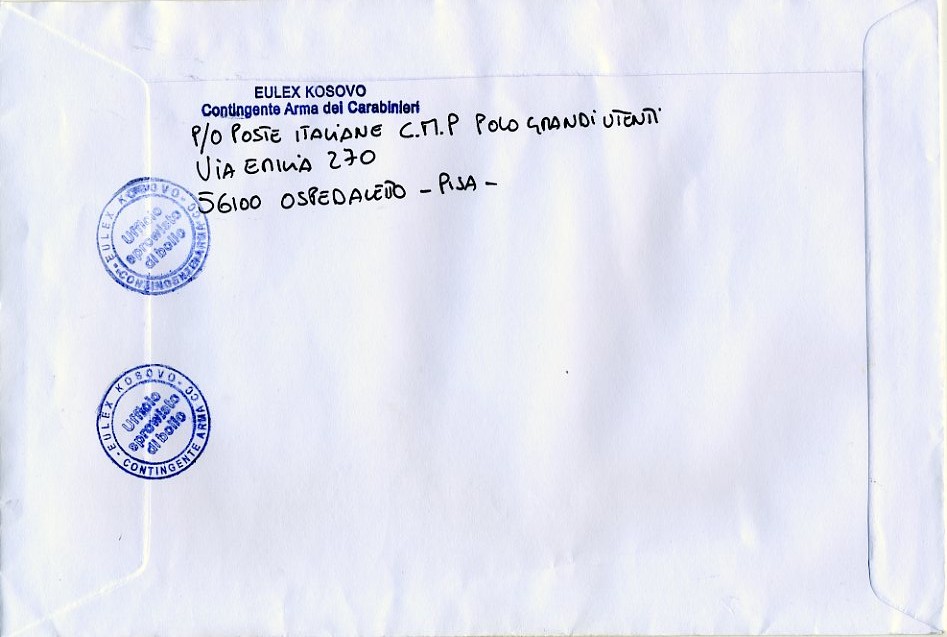 EULEX KOSOVO
Contingente Arma dei Carabinieri
P/O POSTE ITALIANE C.M.P POLO GRANDI UTENTI
VIA EMILIA 270
56100 OSPEDALETTO - PISA -
EULEX KOSOVO - CONTINGENTE ARMA CC -
Ufficio
sprovvisto
di bollo
EULEX KOSOVO - CONTINGENTE ARMA CC -
Ufficio
sprovvisto
di bollo